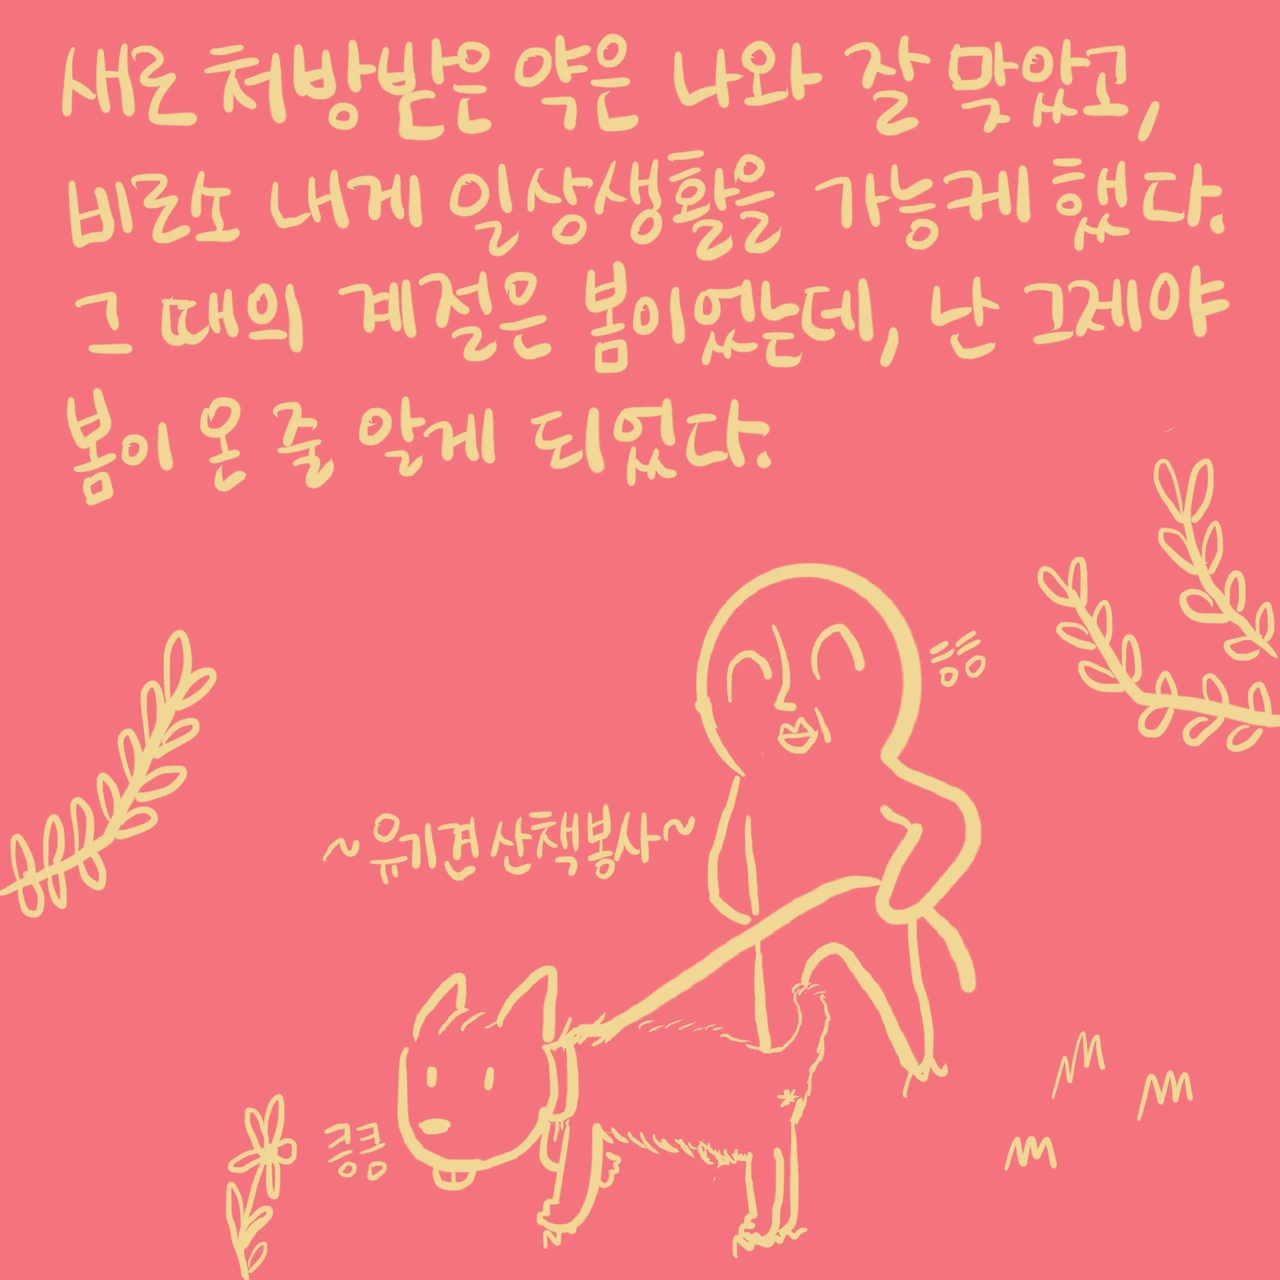 새로 처방받은 약은 나와 잘 맞았고,
비로소 내게 일상생활을 가능케 했다.
그 때의 계절은 봄이었는데, 난 그제야
봄이 온 줄 알게 되었다.
흥흥
~유기견 산책봉사~
킁킁